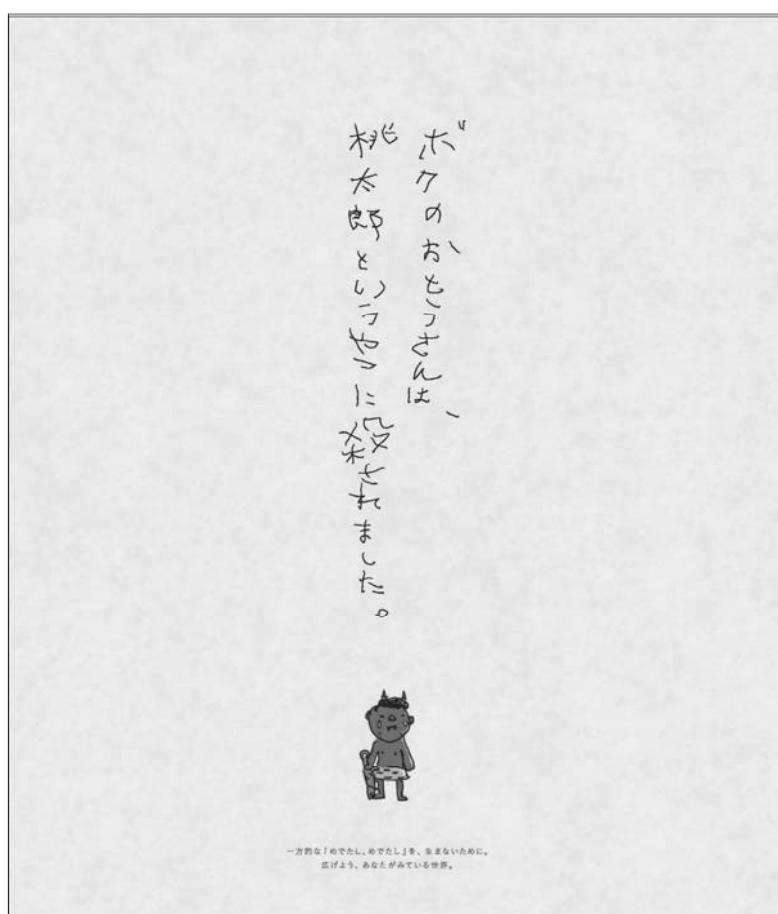 ボクのおとうさんは、
桃太郎というやつに殺されました。
一方的な「めでたし、めでたし」を、生まないために。
広げよう、あなたがみている世界。